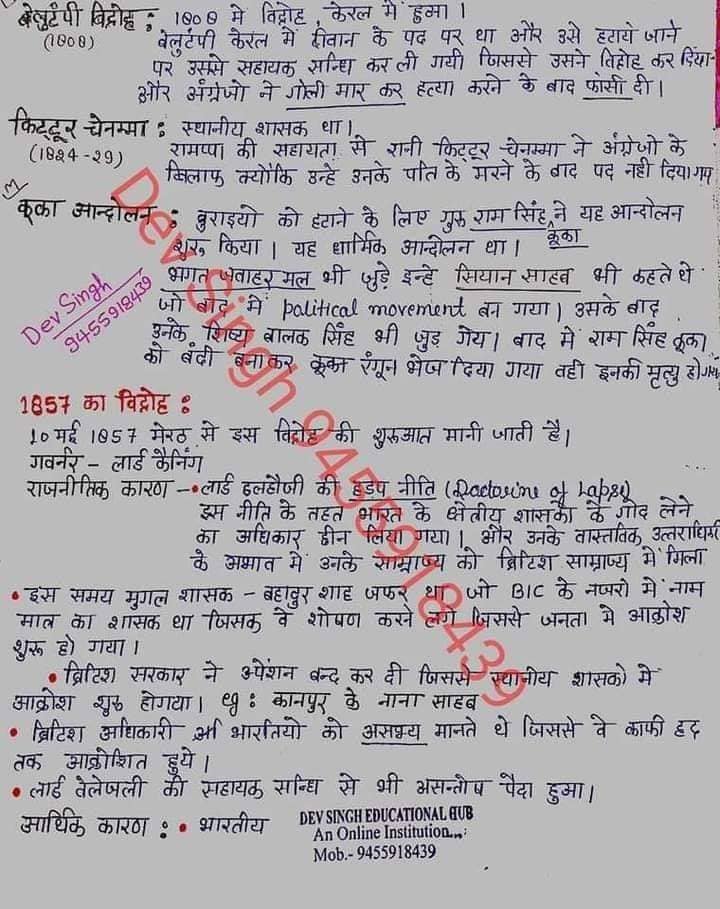 बेलुटंपी विद्रोह : 1808 मे विद्रोह, केरल मे हुमा।
(1808)
बेलुटंपी केरल में दीवान के पद पर था और उसे हटाये जाने
पर उससे सहायक सन्धि कर ली गयी जिससे उसने विद्रोह कर दिया
और अंग्रेजो ने गोली मार कर हत्या करने के बाद फांसी दी।
कित्टूर चेनम्मा : स्थानीय शासक था।
(1824-29)
रामप्पा की सहायता से रानी कित्टूर चेनम्मा ने अंग्रेजो के
खिलाफ क्योंकि उन्हे उनके पति के मरने के बाद पद नही दिया गया
कूका आन्दोलन : बुराइयो को हटाने के लिए गुरु राम सिंह ने यह आन्दोलन
कूका
शुरू किया। यह धार्मिक आन्दोलन था।
भगत जवाहर मल भी जुड़े इन्हे सियान साहब भी कहते थे
जो बाद में political movement बन गया। उसके बाद
उनके शिष्य बालक सिंह भी जुड़ गये। बाद में राम सिंह कूका
को बंदी बनाकर कूका रंगून भेज दिया गया वही इनकी मृत्यु हो गया
Dev Singh
9455918439
1857 का विद्रोह :
10 मई 1857 मेरठ से इस विद्रोह की शुरुआत मानी जाती है।
गवर्नर - लार्ड कैनिंग
राजनीतिक कारण - • लार्ड डलहौजी की हड़प नीति (Doctorine of Lapse)
इस नीति के तहत भारत के क्षेत्रीय शासको के गोद लेने
का अधिकार छीन लिया गया। और उनके वास्तविक उत्तराधिकारी
के अभाव में उनके साम्राज्य को ब्रिटिश साम्राज्य में मिला
• इस समय मुगल शासक - बहादुर शाह जफर था जो BIC के नजरो में नाम
मात्र का शासक था जिसका वे शोषण करने लगे जिससे जनता मे आक्रोश
शुरू हो गया।
• ब्रिटिश सरकार ने पेंशन बन्द कर दी जिससे स्थानीय शासको में
आक्रोश शुरू होगया। eg : कानपुर के नाना साहब
• ब्रिटिश अधिकारी भारतियो को असभ्य मानते थे जिससे वे काफी हद
तक आक्रोशित हुये।
• लार्ड वेलेजली की सहायक सन्धि से भी असन्तोष पैदा हुमा।
आर्थिक कारण : • भारतीय
DEV SINGH EDUCATIONAL HUB
An Online Institution...
Mob.- 9455918439
Dev Singh 9455918439